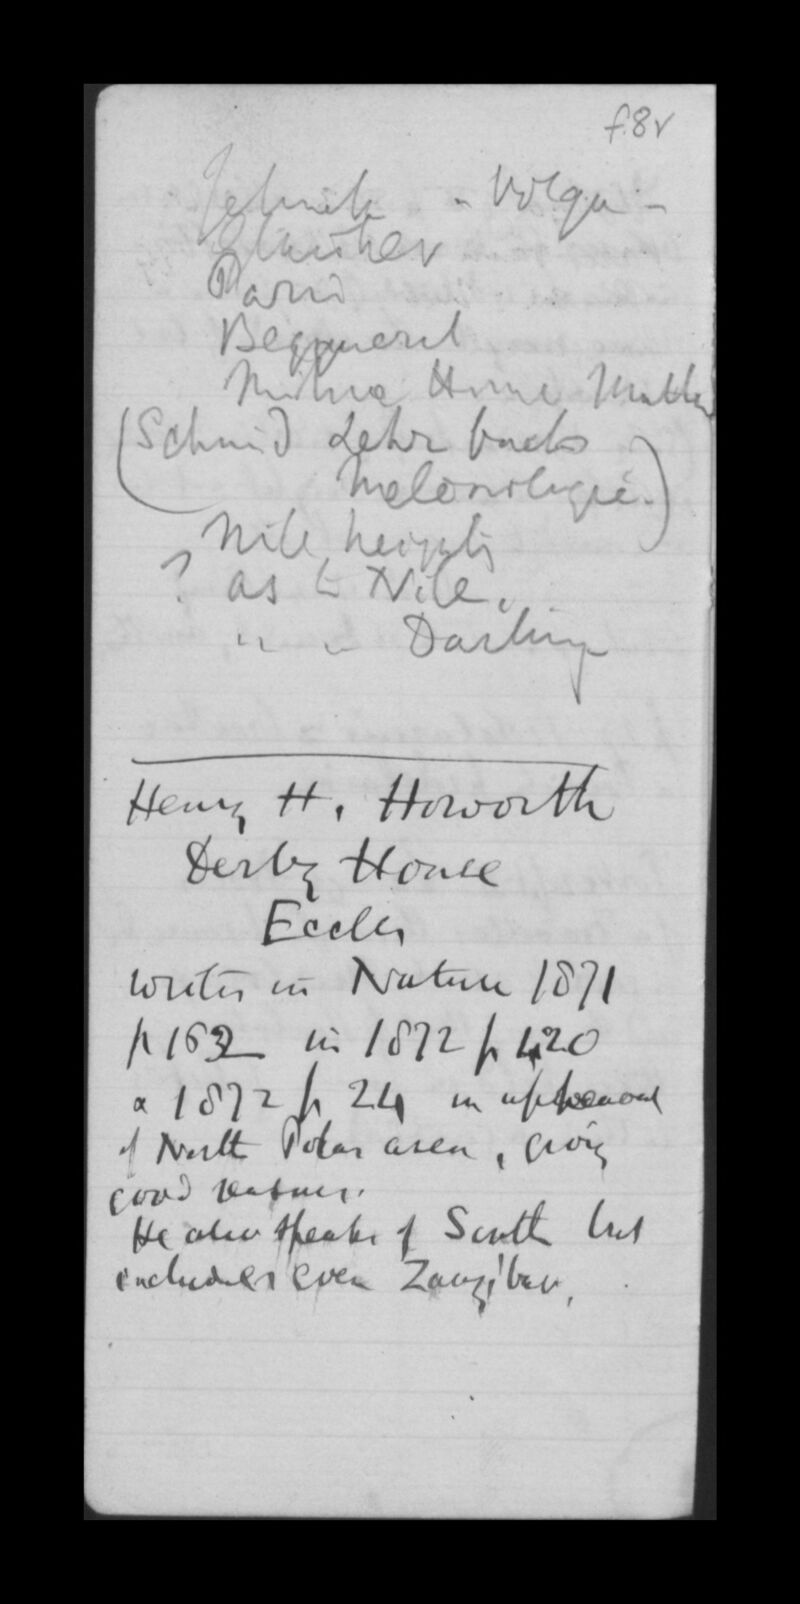 f.8v
- Volga -
Glaisher
David
Becquerel
Milne Home
(Schmid Lehrbuch
Meteorologie.)
Nile heights
? as to Nile.
" " Darling
Henry H. Howorth
Derby House
Eccles
writes in Nature 1871
p 162 in 1872 p 420
& 1872 p 24 in upheaval
of North Polar area, giving
good reasons.
He also speaks of South but
includes even Zanzibar.